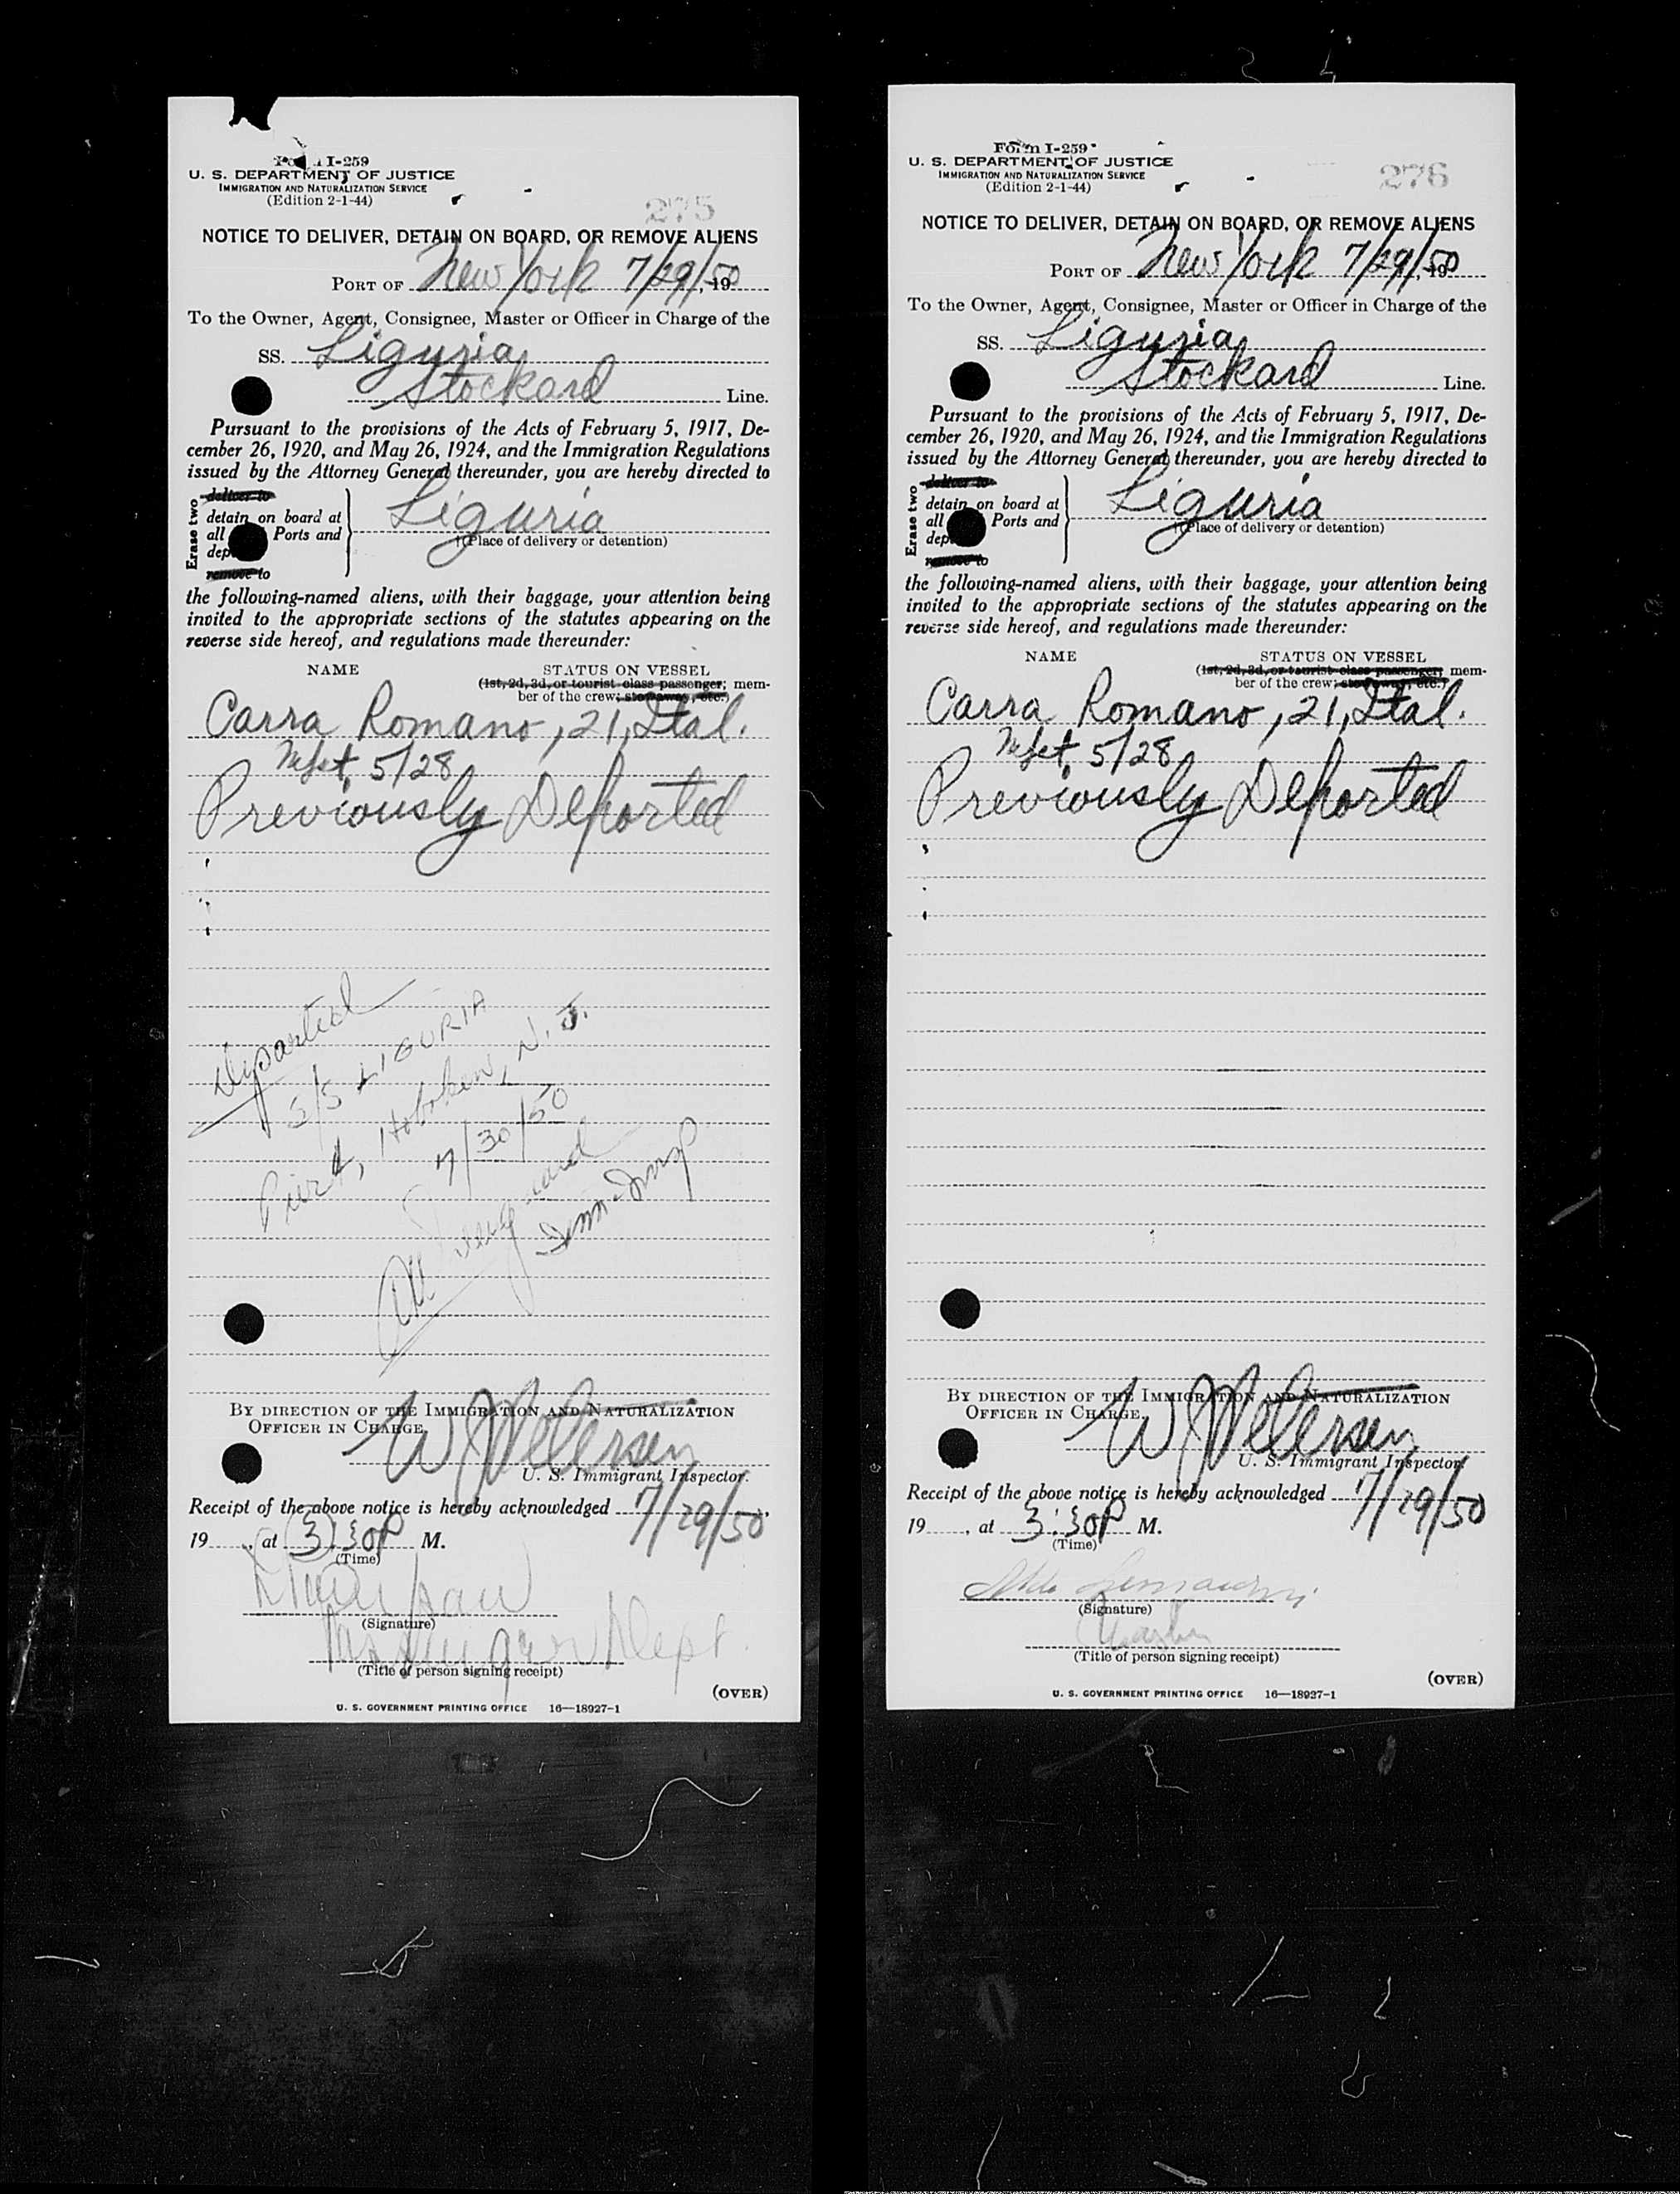 Form I-259
U. S. DEPARTMENT OF JUSTICE
IMMIGRATION AND NATURALIZATION SERVICE
(Edition 2-1-44)
275
NOTICE TO DELIVER, DETAIN ON BOARD, OR REMOVE ALIENS
PORT OF New York 7/29/, 1950
To the Owner, Agent, Consignee, Master or Officer in Charge of the
SS. Liguria
Stockard Line.
Pursuant to the provisions of the Acts of February 5, 1917, De-
cember 26, 1920, and May 26, 1924, and the Immigration Regulations
issued by the Attorney General thereunder, you are hereby directed to
Erase two
deliver to
detain on board at
all Ports and
dep
remove to
Liguria
(Place of delivery or detention)
the following-named aliens, with their baggage, your attention being
invited to the appropriate sections of the statutes appearing on the
reverse side hereof, and regulations made thereunder:
NAME STATUS ON VESSEL
(1st, 2d, 3d, or tourist class passenger; mem-
ber of the crew; stowaway, etc.)
Carra Romano, 21, Ital.
Mfst. 5/28
Previously Deported
Departed
S/S LIGURIA
Pier 4, Hoboken, N. J.
7/30/50
BY DIRECTION OF THE IMMIGRATION AND NATURALIZATION
OFFICER IN CHARGE.
W Petersen
U. S. Immigrant Inspector.
Receipt of the above notice is hereby acknowledged 7/29/50,
19, at 3:30 P M.
(Time)
(Signature)
Passenger Dept.
(Title of person signing receipt)
(OVER)
U. S. GOVERNMENT PRINTING OFFICE 16—18927-1
Form I-259
U. S. DEPARTMENT OF JUSTICE
IMMIGRATION AND NATURALIZATION SERVICE
(Edition 2-1-44)
276
NOTICE TO DELIVER, DETAIN ON BOARD, OR REMOVE ALIENS
PORT OF New York 7/29/, 1950
To the Owner, Agent, Consignee, Master or Officer in Charge of the
SS. Liguria
Stockard Line.
Pursuant to the provisions of the Acts of February 5, 1917, De-
cember 26, 1920, and May 26, 1924, and the Immigration Regulations
issued by the Attorney General thereunder, you are hereby directed to
Erase two
deliver to
detain on board at
all Ports and
dep
remove to
Liguria
(Place of delivery or detention)
the following-named aliens, with their baggage, your attention being
invited to the appropriate sections of the statutes appearing on the
reverse side hereof, and regulations made thereunder:
NAME STATUS ON VESSEL
(1st, 2d, 3d, or tourist class passenger; mem-
ber of the crew; stowaway, etc.)
Carra Romano, 21, Ital.
Mfst. 5/28
Previously Deported
BY DIRECTION OF THE IMMIGRATION AND NATURALIZATION
OFFICER IN CHARGE.
W Petersen
U. S. Immigrant Inspector.
Receipt of the above notice is hereby acknowledged 7/29/50
19, at 3:30 P M.
(Time)
(Signature)
(Title of person signing receipt)
(OVER)
U. S. GOVERNMENT PRINTING OFFICE 16—18927-1